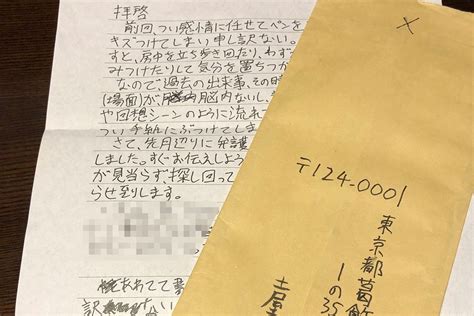 拝啓
前回、つい感情に任せてペンを
キズつけてしまい申し訳ない。
すと、房中を立ち歩き回たり、わず
みつけたりして気分を置ちつか
なので、過去の出来事、その時
(場面)が、脳内ないし
や回想シーンのように流れ
つい手紙にぶつけてしま
さて、先月辺りに発護
しました。すぐお伝えしよう
が見当らず、探し回って
らせ至りします。
あわてて
訳
〒124-0001
東京都葛飾
1の35
土屋